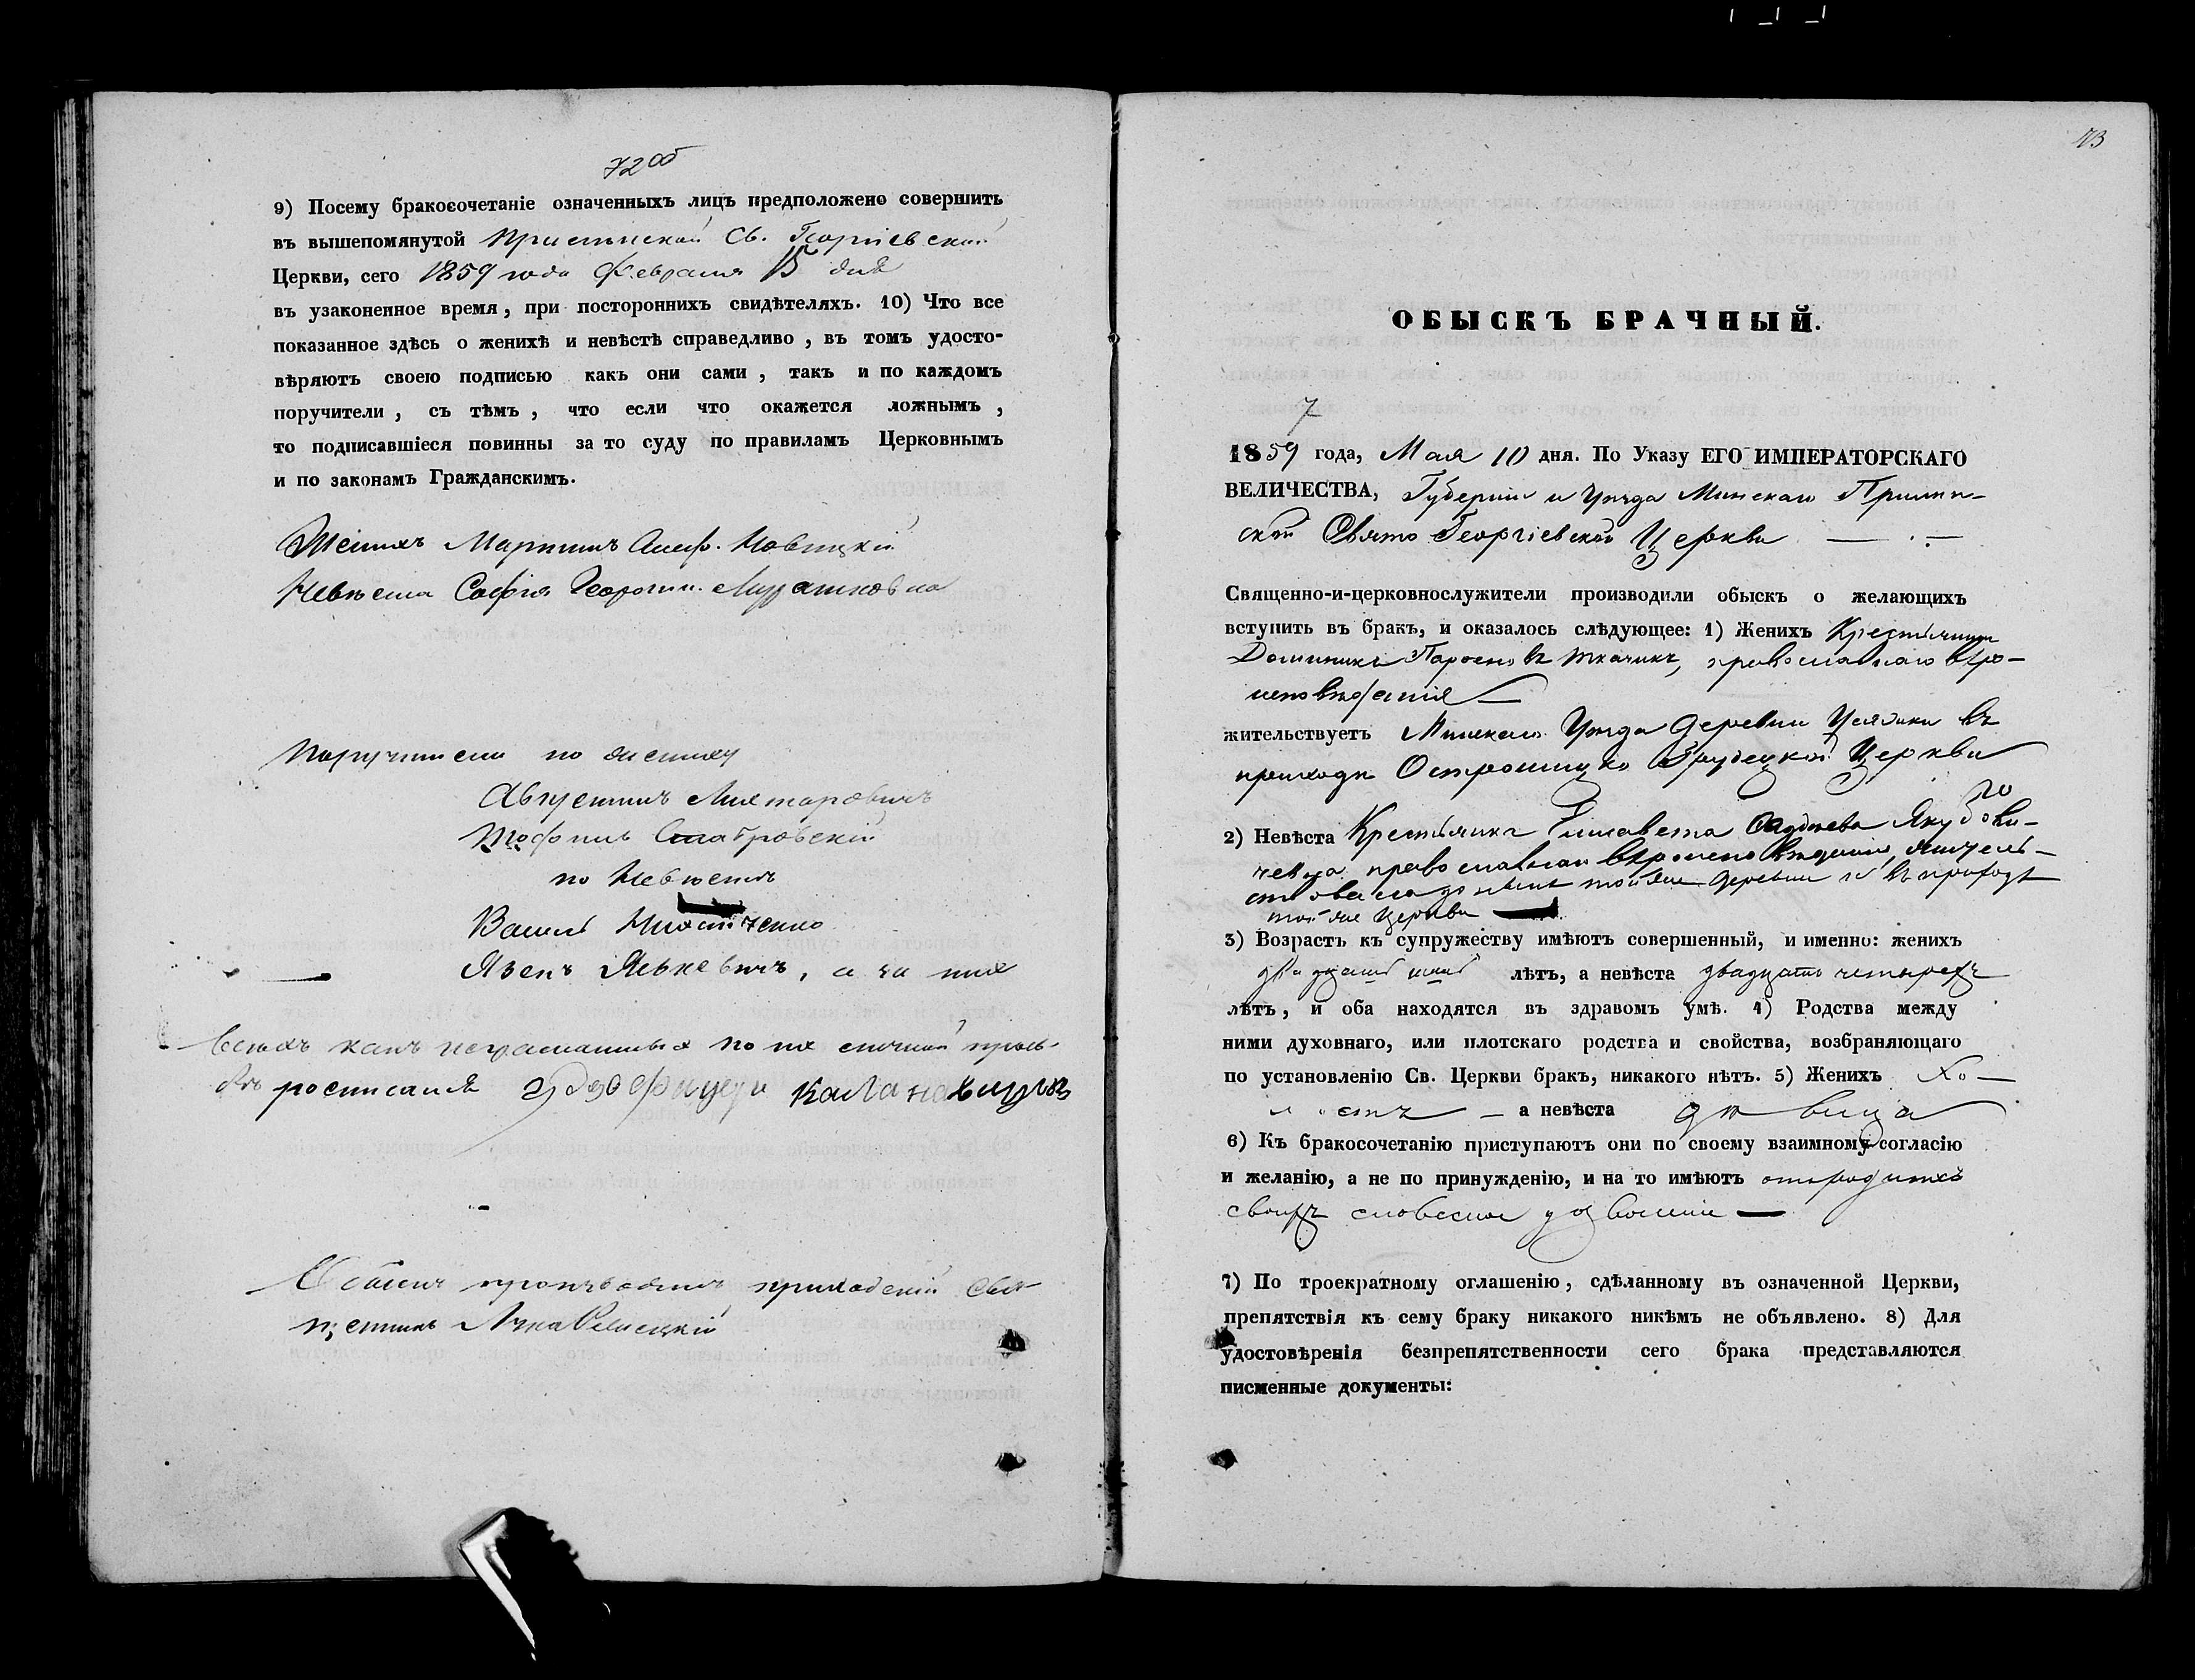 72 об
9) Посему бракосочетаніе означенныхъ лицъ предположено совершить
въ вышепомянутой Св. Георгіевской
Церкви, сего 1859 года Февраля 15 дня
въ узаконенное время, при постороннихъ свидѣтеляхъ. 10) Что все
показанное здѣсь о женихѣ и невѣстѣ справедливо, въ томъ удосто-
вѣряютъ своею подписью какъ они сами, такъ и по каждомъ
поручители, съ тѣмъ, что если что окажется ложнымъ,
то подписавшіеся повинны за то суду по правиламъ Церковнымъ
и по законамъ Гражданскимъ.
Женихъ Мартинъ Новицкій
Невѣста Софія Георгіи. Мурашковна
Поручители по жениху
Августинъ
Тофиль
по Невѣстѣ
Василь
Язепъ Яськевичъ, а за них
всѣхъ какъ неграматных по их личной прозь-
бѣ росписался
Обыскъ производилъ приходскій Свя-
щенникъ Лука
73
ОБЫСКЪ БРАЧНЫЙ.
7
1859 года, Мая 10 дня. По Указу ЕГО ИМПЕРАТОРСКАГО
ВЕЛИЧЕСТВА, Губерніи и Уѣзда Минскаго Прилѣп-
ской Свято Георгіевской Церкви
Священно-и-церковнослужители производили обыскъ о желающихъ
вступить въ бракъ, и оказалось слѣдующее: 1) Женихъ Крестьянинъ
Доминикъ Парѳеновъ Ткачикъ, православнаго вѣро-
исповѣданія
жительствуетъ Минскаго Уѣзда Деревни Усяжи въ
приходѣ Острошицко Городецкой Церкви
2) Невѣста Крестьянка Елисавета Якубови-
чевна православнаго вѣроисповѣданія, жительст-
вовала до нынѣ той же Деревни и въ приходѣ
той же Церкви
3) Возрастъ къ супружеству имѣютъ совершенный, и именно: женихъ
двадцать лѣтъ, а невѣста двадцать четырехъ
лѣтъ, и оба находятся въ здравомъ умѣ. 4) Родства между
ними духовнаго, или плотскаго родства и свойства, возбраняющаго
по установленію Св. Церкви бракъ, никакого нѣтъ. 5) Женихъ Хо-
лостъ — а невѣста дѣвица
6) Къ бракосочетанію приступаютъ они по своему взаимному согласію
и желанію, а не по принужденію, и на то имѣютъ отъ родителей
своихъ словесное дозволеніе
7) По троекратному оглашенію, сдѣланному въ означенной Церкви,
препятствія къ сему браку никакого никѣмъ не объявлено. 8) Для
удостовѣренія безпрепятственности сего брака представляются
писменные документы: